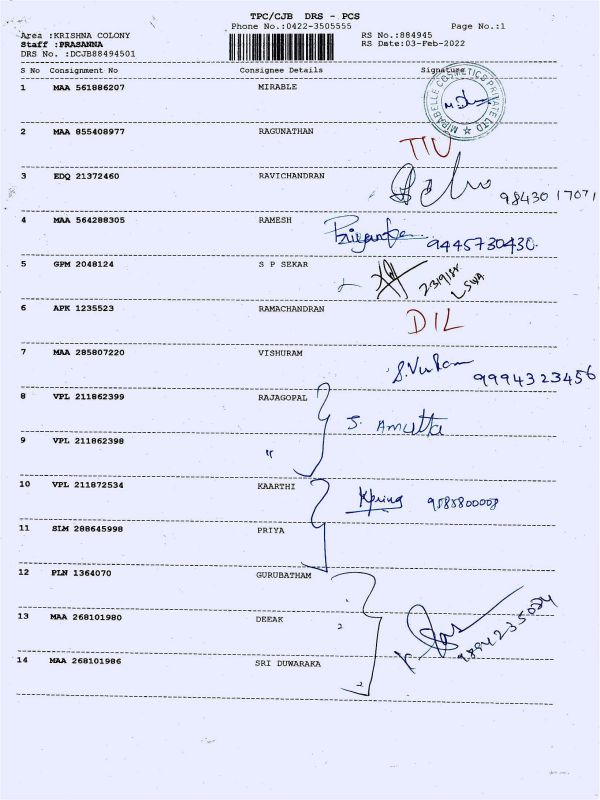 TPC/CJB DRS - PCS
Phone No.:0422-3505555 Page No.:1
Area :KRISHNA COLONY RS No.:884945
Staff :PRASANNA RS Date:03-Feb-2022
DRS No. :DCJB88494501
S No Consignment No Consignee Details Signature
1 MAA 561886207 MIRABLE
MIRABELLE COSMETICS PRIVATE LTD
2 MAA 855408977 RAGUNATHAN
3 EDQ 21372460 RAVICHANDRAN
9843017071
4 MAA 564288305 RAMESH
9445730430
5 GPM 2048124 S P SEKAR
6 APK 1235523 RAMACHANDRAN
DIL
7 MAA 285807220 VISHURAM
9994323456
8 VPL 211862399 RAJAGOPAL
S. Amutta
9 VPL 211862398 "
10 VPL 211872534 KAARTHI
9585800008
11 SLM 288645998 PRIYA
12 PLN 1364070 GURUBATHAM
13 MAA 268101980 DEEAK
14 MAA 268101986 SRI DUWARAKA